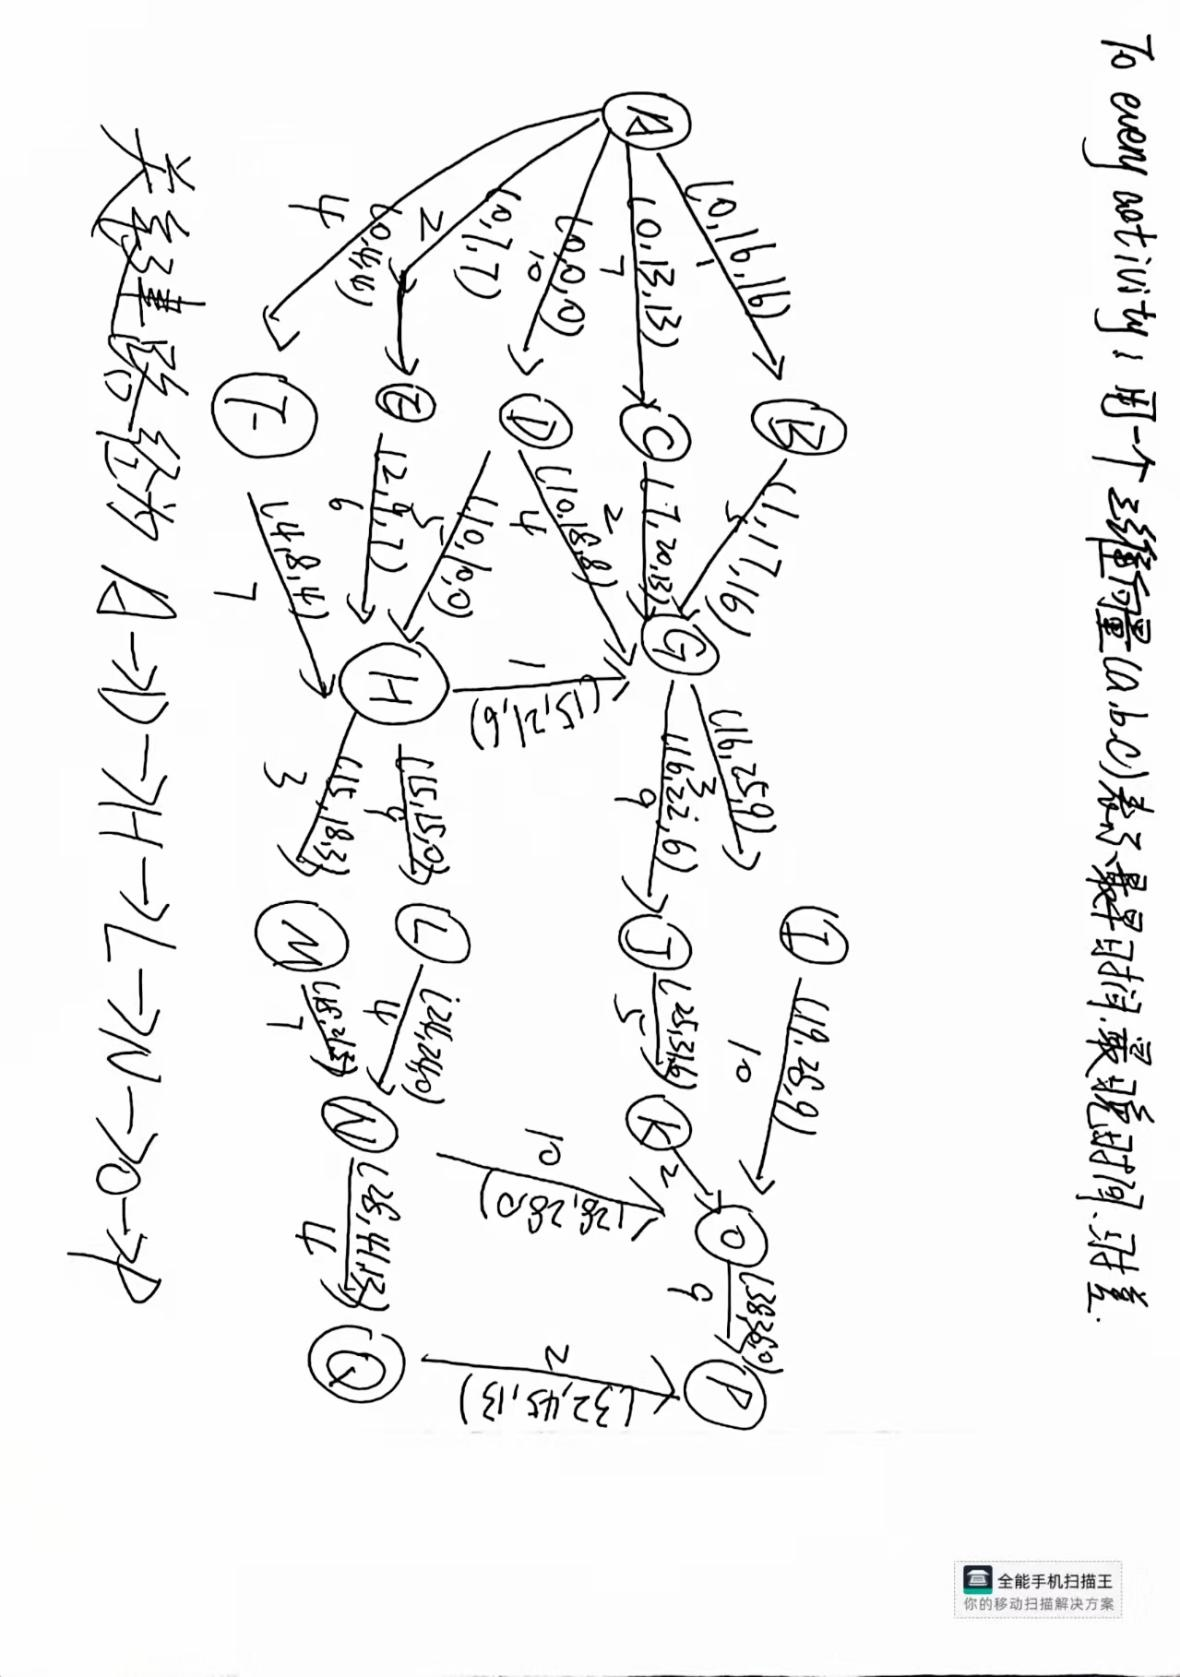 To every activity: 用一个三维向量(a.b.c)表示最早时间.最晚时间.时差.
A
(0,16,16)
1
(0,13,13)
7
(0,0,0)
10
(0,7,7)
2
(0,4,4)
4
B
C
D
E
F
(1,17,16)
5
(7,20,13)
2
(10,18,8)
4
(10,10,0)
5
(2,9,7)
6
(4,8,4)
7
G
H
1
(15,21,6)
(16,25,9)
3
(16,22,6)
9
(15,15,0)
9
(15,18,3)
3
I
J
L
M
(19,28,9)
10
(25,31,6)
5
(24,24,0)
4
(18,21,3)
7
K
N
2
10
(28,28,0)
(28,41,13)
4
O
Q
9
2
(32,45,13)
P
关键路径为 A->D->H->L->N->O->P
全能手机扫描王
你的移动扫描解决方案